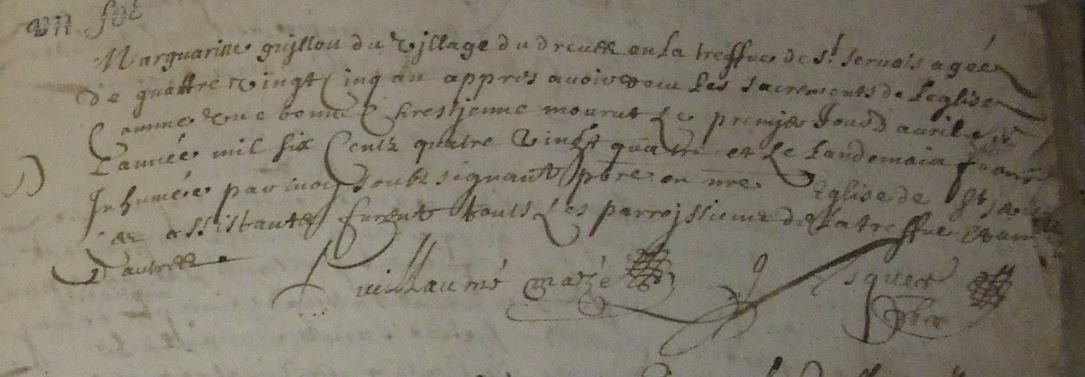 un foi
Marguaritte guillou du village du dreuer en la treffve de st servais agée
de quattre vingt cinq an appres avoir receu les sacrements de l'eglise
comme une bonne chrestienne mourut le premier Jour d'avril
L'année mil six Centz quatre vingt quatre et le landemain
Inhumée par moy soubz signant pbre en nre Eglise de st
assistantz furent touts les parroissiens de la treffve
d'autres
Guillaume mazé